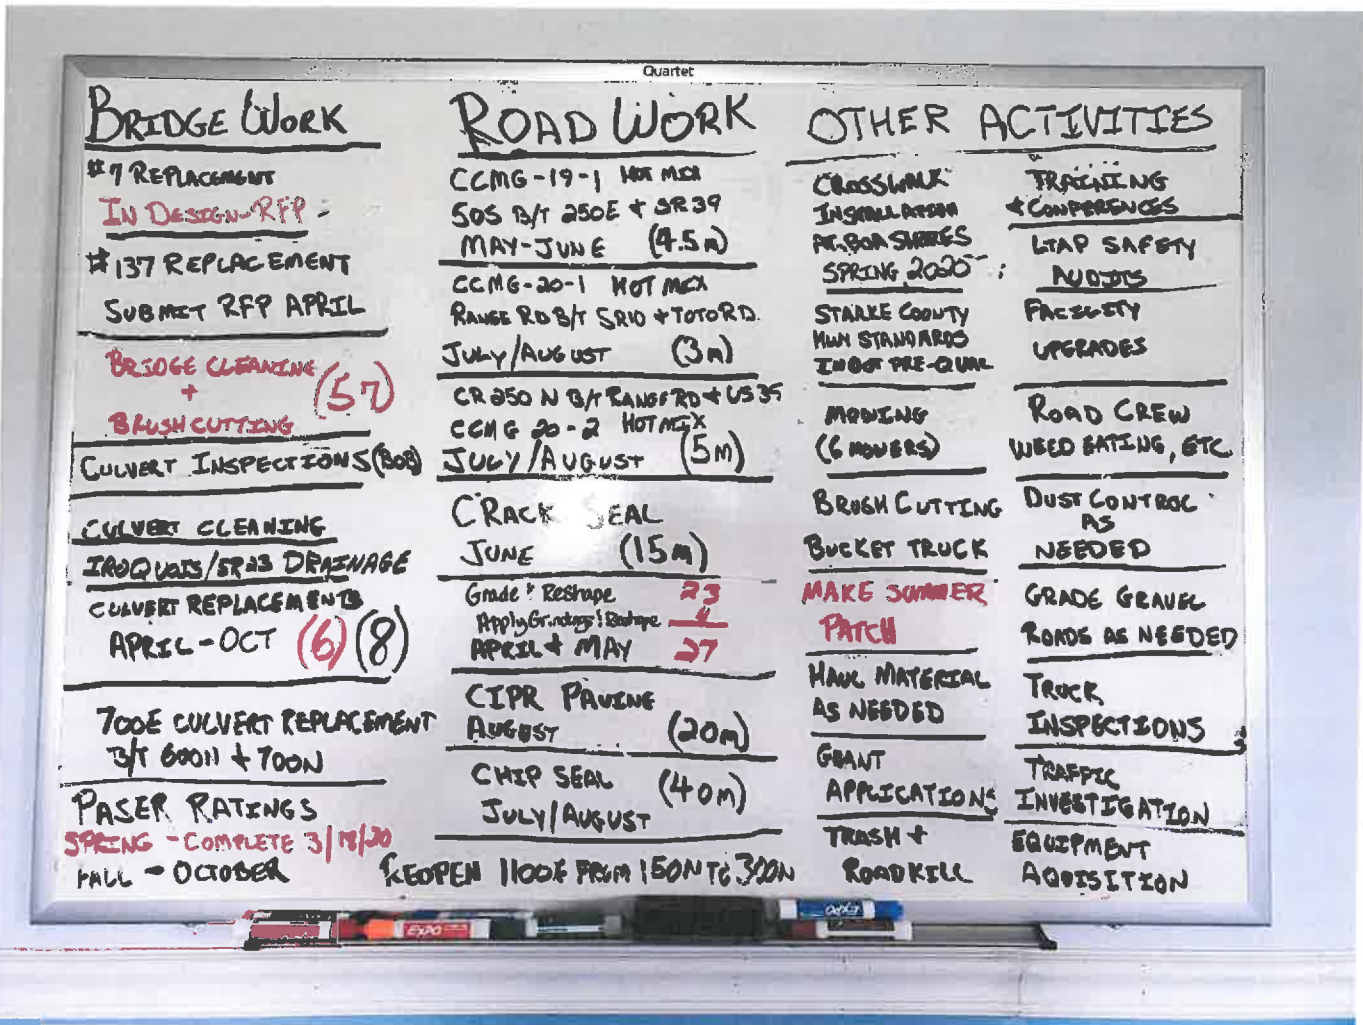 Quartet
BRIDGE WORK
#7 REPLACEMENT
IN DESIGN-RFP
#137 REPLACEMENT
SUBMIT RFP APRIL
BRIDGE CLEANING
+
BRUSH CUTTING
(57)
CULVERT INSPECTIONS (BOB)
CULVERT CLEANING
IROQUOIS/SR23 DRAINAGE
CULVERT REPLACEMENTS
APRIL-OCT (6) (8)
700E CULVERT REPLACEMENT
B/T 600N + 700N
PASER RATINGS
SPRING - COMPLETE 3/18/20
FALL - OCTOBER
ROAD WORK
CCMG-19-1 HOT MIX
50S B/T 250E + SR39
MAY-JUNE (4.5m)
CCMG-20-1 HOT MIX
RANGE RD B/T SR10 + TOTO RD.
JULY/AUGUST (3m)
CR 250 N B/T RANGE RD + US 35
CCMG 20-2 HOT MIX
JULY/AUGUST (5m)
CRACK SEAL
JUNE (15m)
Grade & Reshape 23
Apply Grindings & Reshape 4
APRIL + MAY 27
CIPR PAVING
AUGUST (20m)
CHIP SEAL (40m)
JULY/AUGUST
REOPEN 1100E FROM 150N TO 300N
OTHER ACTIVITIES
CROSSWALK
INSTALLATION
SHORES
SPRING 2020
STARKE COUNTY
HWY STANDARDS
INDOT PRE-QUAL
MOWING
(6 MOWERS)
BRUSH CUTTING
BUCKET TRUCK
MAKE SUMMER
PATCH
HAUL MATERIAL
AS NEEDED
GRANT
APPLICATIONS
TRASH +
ROADKILL
TRAINING
+ CONFERENCES
LTAP SAFETY
AUDITS
FACILITY
UPGRADES
ROAD CREW
WEED EATING, ETC
DUST CONTROL
AS
NEEDED
GRADE GRAVEL
ROADS AS NEEDED
TRUCK
INSPECTIONS
TRAFFIC
INVESTIGATION
EQUIPMENT
AQUISITION
EXPO